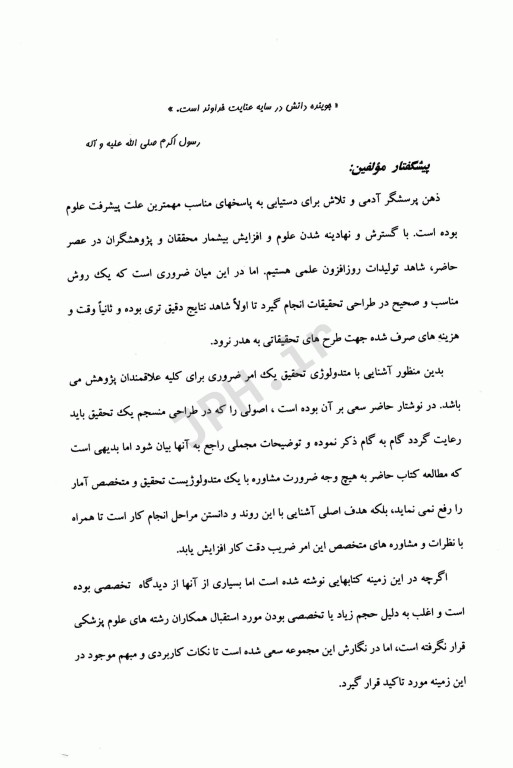 « جوینده دانش در سایه عنایت خداوند است. »
رسول اکرم صلی الله علیه و آله
پیشگفتار مؤلفین:
ذهن پرسشگر آدمی و تلاش برای دستیابی به پاسخهای مناسب مهمترین علت پیشرفت علوم
بوده است. با گسترش و نهادینه شدن علوم و افزایش بیشمار محققان و پژوهشگران در عصر
حاضر، شاهد تولیدات روزافزون علمی هستیم. اما در این میان ضروری است که یک روش
مناسب و صحیح در طراحی تحقیقات انجام گیرد تا اولاً شاهد نتایج دقیق تری بوده و ثانیاً وقت و
هزینه های صرف شده جهت طرح های تحقیقاتی به هدر نرود.
بدین منظور آشنایی با متدولوژی تحقیق یک امر ضروری برای کلیه علاقمندان پژوهش می
باشد. در نوشتار حاضر سعی بر آن بوده است ، اصولی را که در طراحی منسجم یک تحقیق باید
رعایت گردد گام به گام ذکر نموده و توضیحات مجملی راجع به آنها بیان شود اما بدیهی است
که مطالعه کتاب حاضر به هیچ وجه ضرورت مشاوره با یک متدولوژیست تحقیق و متخصص آمار
را رفع نمی نماید، بلکه هدف اصلی آشنایی با این روند و دانستن مراحل انجام کار است تا همراه
با نظرات و مشاوره های متخصص این امر ضریب دقت کار افزایش یابد.
اگرچه در این زمینه کتابهایی نوشته شده است اما بسیاری از آنها از دیدگاه تخصصی بوده
است و اغلب به دلیل حجم زیاد یا تخصصی بودن مورد استقبال همکاران رشته های علوم پزشکی
قرار نگرفته است، اما در نگارش این مجموعه سعی شده است تا نکات کاربردی و مبهم موجود در
این زمینه مورد تاکید قرار گیرد.
JPH.ir